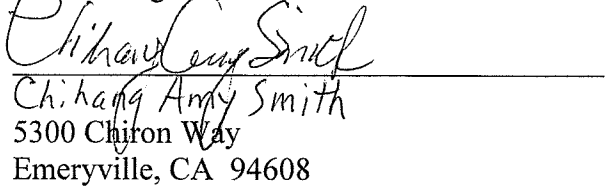 Chihang Amy Smith
Chihang Amy Smith
5300 Chiron Way
Emeryville, CA 94608